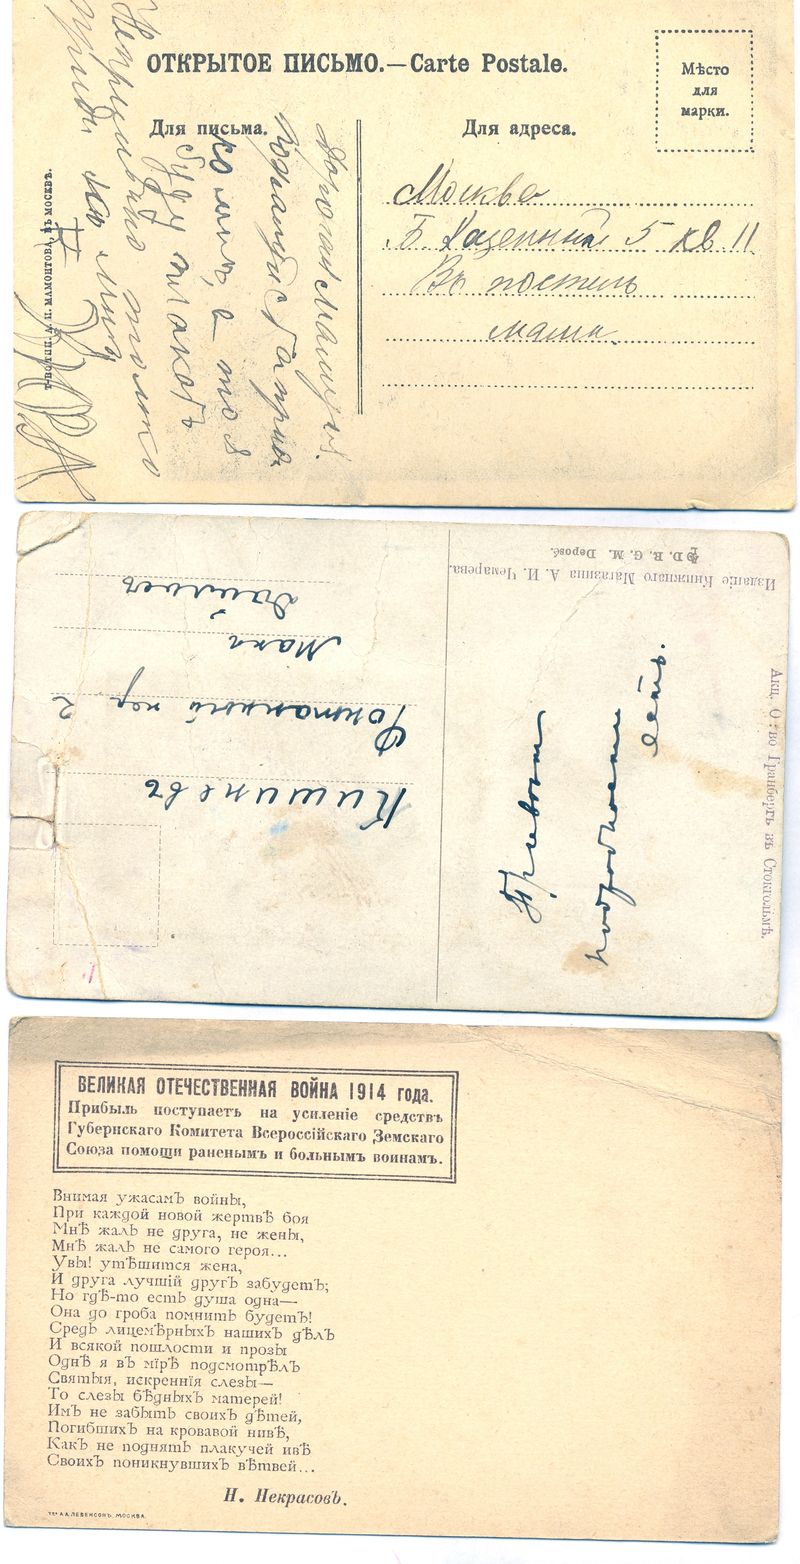 ОТКРЫТОЕ ПИСЬМО.—Carte Postale.
Мѣсто
для
марки.
Для письма.
Для адреса.
Москва
5 кв 11
Въ постель
маме.
Дорогая
буду плакать
Непремѣнно только
приди ко мнѣ
Т-во тип. А. И. Мамонтова, въ Москвѣ.
Изданіе Книжнаго Магазина А. И. Чемарева.
D. R. G. M.
Акц. О-во Гранбергъ въ Стокгольмѣ.
Кишиневъ
Фонтанный пер 2
Привѣт
подробности
есть.
ВЕЛИКАЯ ОТЕЧЕСТВЕННАЯ ВОЙНА 1914 года.
Прибыль поступаетъ на усиленіе средствъ
Губернскаго Комитета Всероссійскаго Земскаго
Союза помощи раненымъ и больнымъ воинамъ.
Внимая ужасамъ войны,
При каждой новой жертвѣ боя
Мнѣ жаль не друга, не жены,
Мнѣ жаль не самого героя...
Увы! утѣшится жена,
И друга лучшій другъ забудетъ;
Но гдѣ-то есть душа одна—
Она до гроба помнить будетъ!
Средь лицемѣрныхъ нашихъ дѣлъ
И всякой пошлости и прозы
Однѣ я въ мірѣ подсмотрѣлъ
Святыя, искреннія слезы—
То слезы бѣдныхъ матерей!
Имъ не забыть своихъ дѣтей,
Погибшихъ на кровавой нивѣ,
Какъ не поднять плакучей ивѣ
Своихъ поникнувшихъ вѣтвей...
Н. Некрасовъ.
Т-во А.А.ЛЕВЕНСОНЪ. МОСКВА.